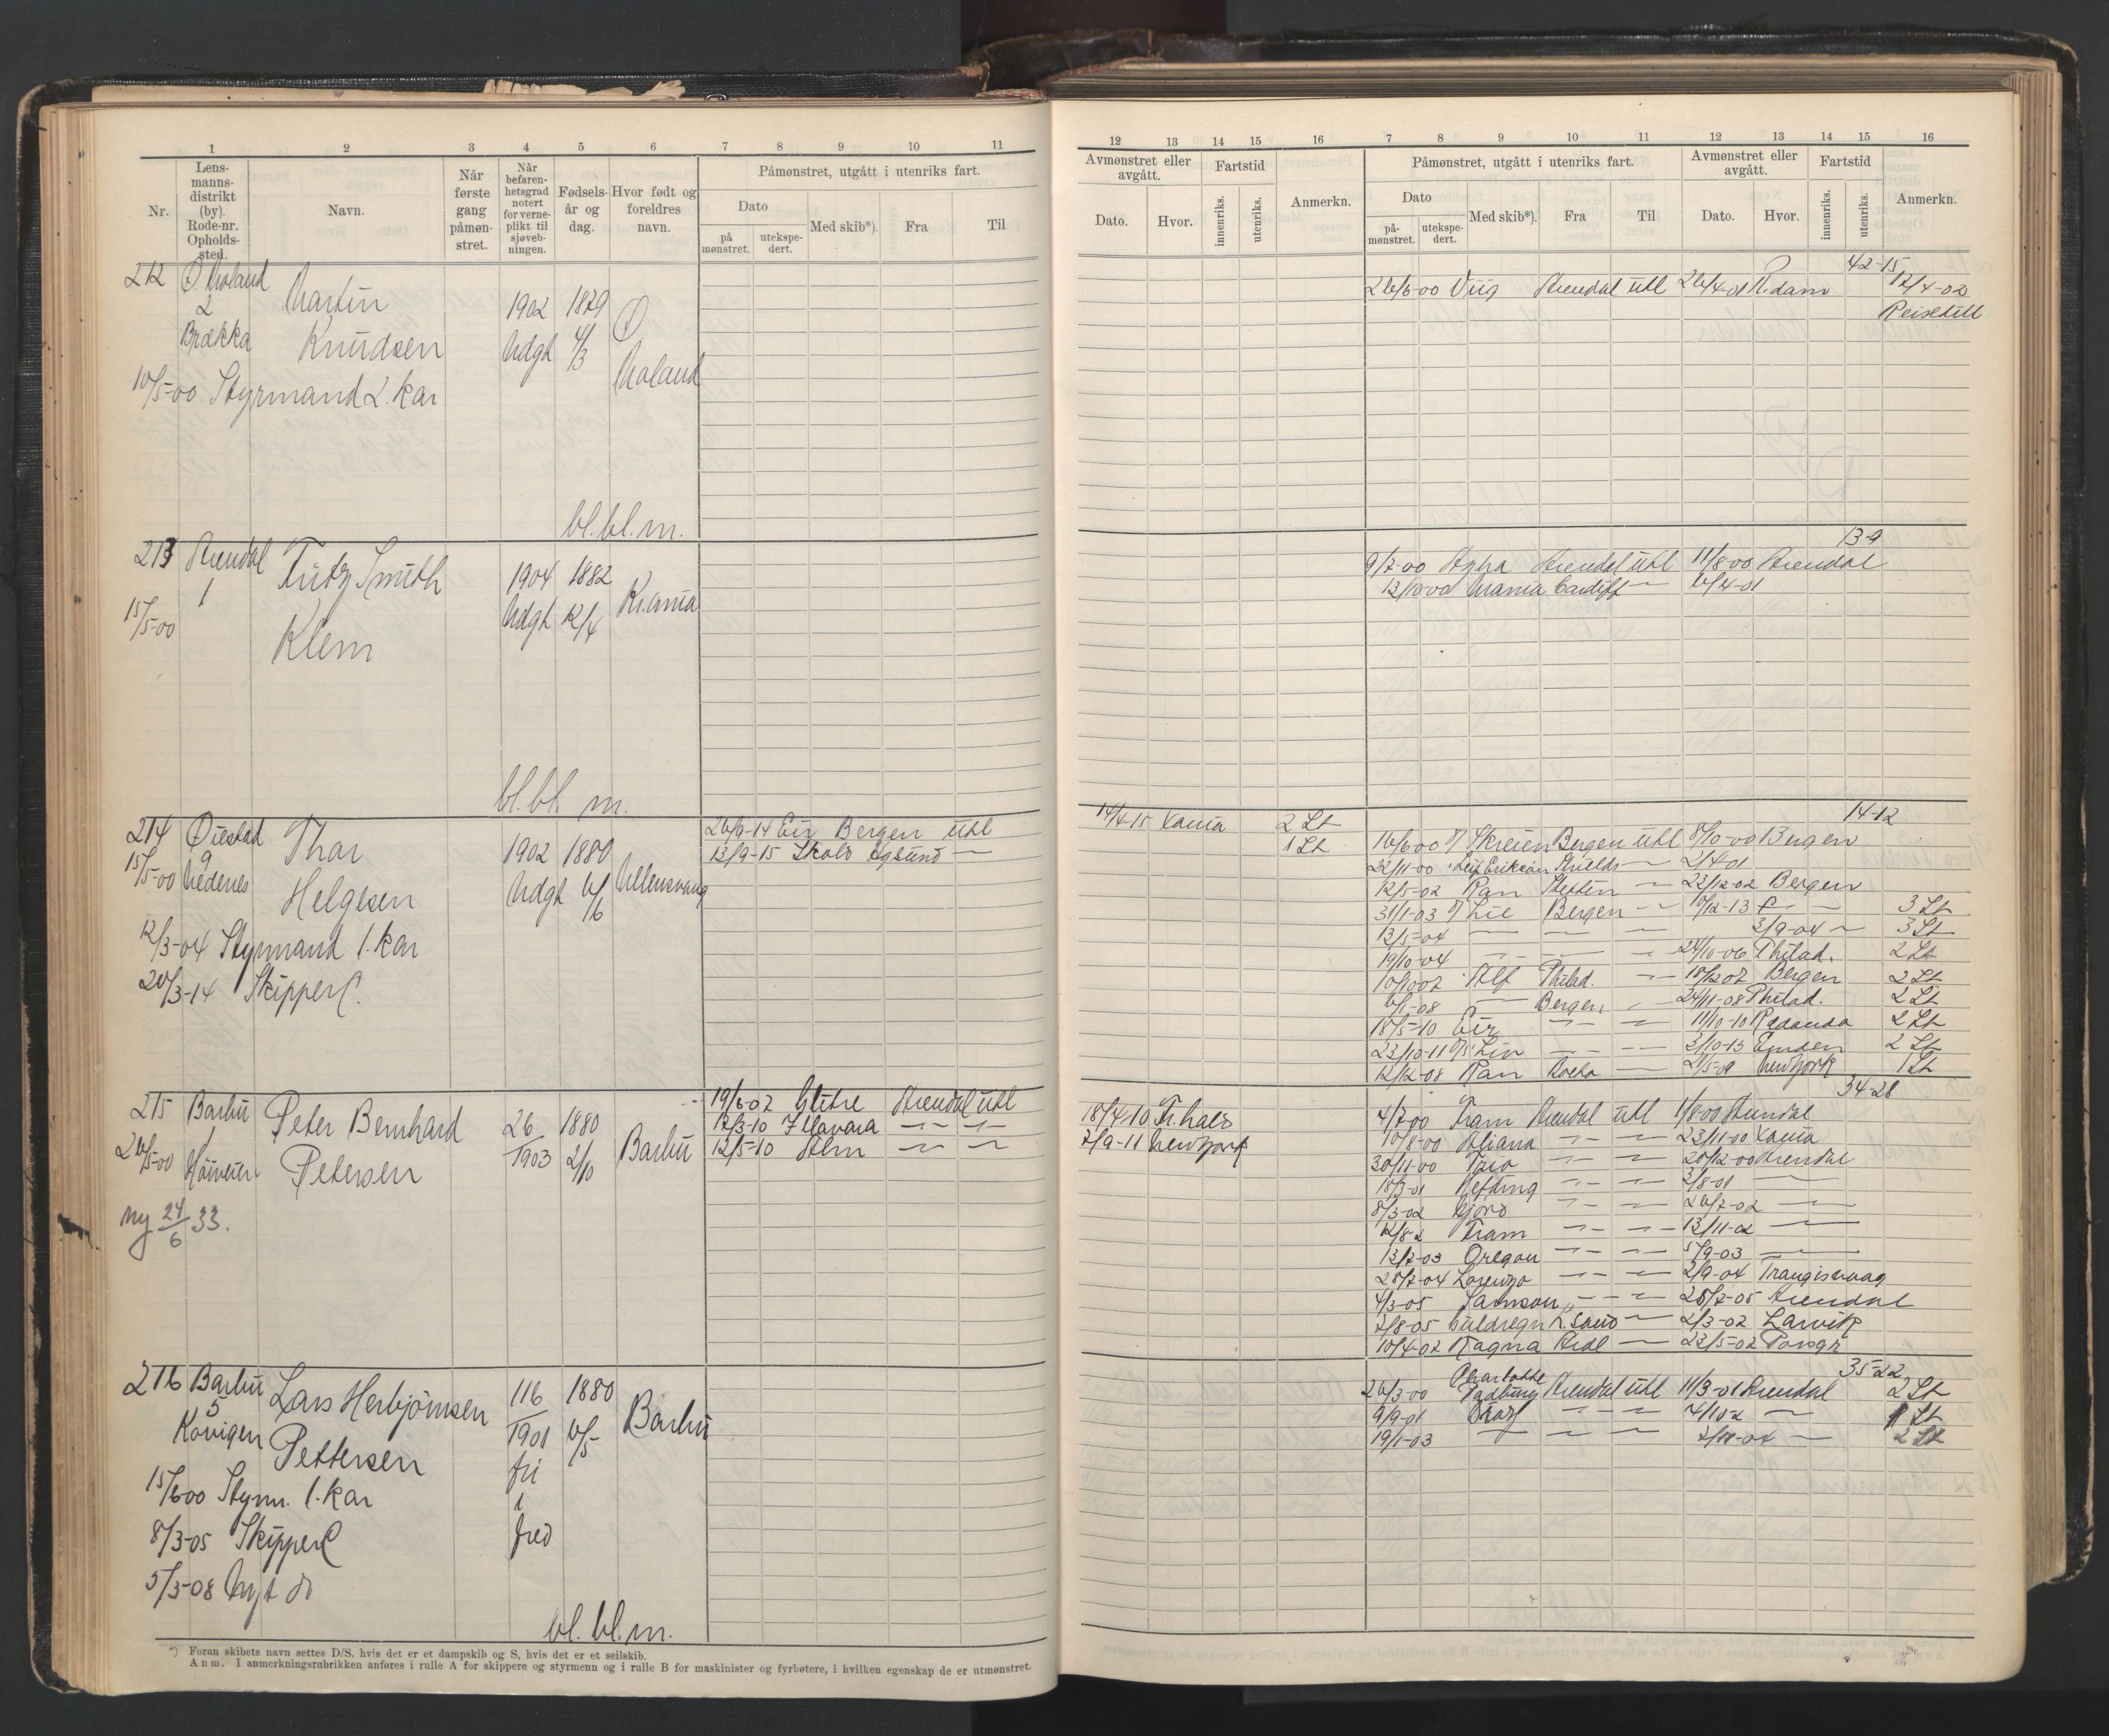 1 2 3 4 5 6 7 8 9 10 11
Nr.
Lens-
manns-
distrikt
(by).
Rode-nr.
Opholds-
sted.
Navn.
Når
første
gang
påmøn-
stret.
Når
befaren-
hetsgrad
notert
for verne-
plikt til
sjøveb-
ningen.
Fødsels-
år og
dag.
Hvor født og
foreldres
navn.
Påmønstret, utgått i utenriks fart.
Dato
på
mønstret.
utekspe-
dert.
Med skib*).
Fra
Til
212 Ø. Moland Martin 1902 1879 Ø
2
Brække Knudsen Udgt 4/3 Moland
10/5-00 Styrmand 2. kar
bl. bl. m.
213 Arendal Fritz Smith 1904 1882 Kr.ania
1
15/5-00 Klem Udgt 12/4
bl. bl. m.
214 Øiestad Thor 1902 1880 26/9-14 Eir Bergen Utl
9
15/5-00 Nedenes Helgesen Udgt 6/6 13/9-15 Skold —
12/3-04 Styrmand 1. kar
20/3-14 SkipperC.
215 Barbu Peter Bernhard 26 1880 19/6-07 Glitre Arendal Utl
1
26/5-00 Petersen 1903 2/10 Barbu 12/3-10 Illawara — —
12/5-10 Alm — —
ny 24/6 33.
216 Barbu Lars Herbjørnsen 116 1880 Barbu
5
Kovigen Pettersen 1901 6/5
fri
15/6 00 Styrm. 1. kar i
8/3-05 SkipperC fred
5/3-08 Nyt do
bl. bl. m.
*) Foran skibets navn settes D/S, hvis det er et dampskib og S, hvis det er et seilskib.
Anm. I anmerkningsrubrikken anføres i rulle A for skippere og styrmenn og i rulle B for maskinister og fyrbøtere, i hvilken egenskap de er utmønstret.
12 13 14 15 16 7 8 9 10 11 12 13 14 15 16
Avmønstret eller
avgått.
Dato.
Hvor.
Fartstid
innenriks.
utenriks.
Anmerkn.
Påmønstret, utgått i utenriks fart.
Dato
på-
mønstret.
utekspe-
dert.
Med skib*).
Fra
Til
Avmønstret eller
avgått.
Dato.
Hvor.
Fartstid
innenriks.
utenriks.
Anmerkn.
42-15
26/6-00 Viig Arendal Utl 26/4-01 R.dam 12/4-02
13-9
9/7-00 Arendal Utl 11/8-00 Arendal
13/10-00 Urania Cardiff — 6/4-01
14-12
14/4-15 Xania 2 St
1 St
16/6 00 Skreien Bergen Utl 8/10-00 Bergen
22/11-00 Leif Erikson Shields — 2/4-01
12/5-02 Ran Stettin — 23/12-02 Bergen
31/1-03 Bergen — 10/12-13 — 3 St
13/5-04 — — — 3/9-04 — 3 St
19/10-04 — — — 24/10-06 Philad. 2 St
10/10 07 Alf Philad. — 18/12 07 Bergen 2 St
6/1-08 — Bergen — 24/11-08 Philad. 2 St
18/5-10 Eir — — 11/10-10 Redonda 2 St
23/10-11 — — 3/10-13 Emden 2 St
12/12-08 Ran — 21/5-09 NewYork 1 St
34-28
18/4-10 Fr.hald 4/7-00 Fram Arendal Utl 1/8-00 Arendal
7/9-11 NewYork 10/8-00 — — 23/11-00 Xania
30/11-00 — — 20/12-00 Arendal
18/3-01 Høfding — — 2/8-01 —
8/3-02 Njord — — 26/7-02 —
12/8-2 Fram — — 13/11-02 —
13/7-03 Oregon — — 5/9-03 —
28/7-04 Lorenzo — — 2/9-04 Trangisvaag
4/3-05 Samson — — 25/7-05 Arendal
7/8-05 Guldregn — 2/3-07 Larvik
10/4-07 Ragna Ardl — 23/5-07 Porsgr
35-22
Charlotte
26/3-00 Padbury Arendal Utl 11/3-01 Arendal 2 St
9/9-01 — — 4/10-2 — 1 St
19/1-03 — — — 2 St